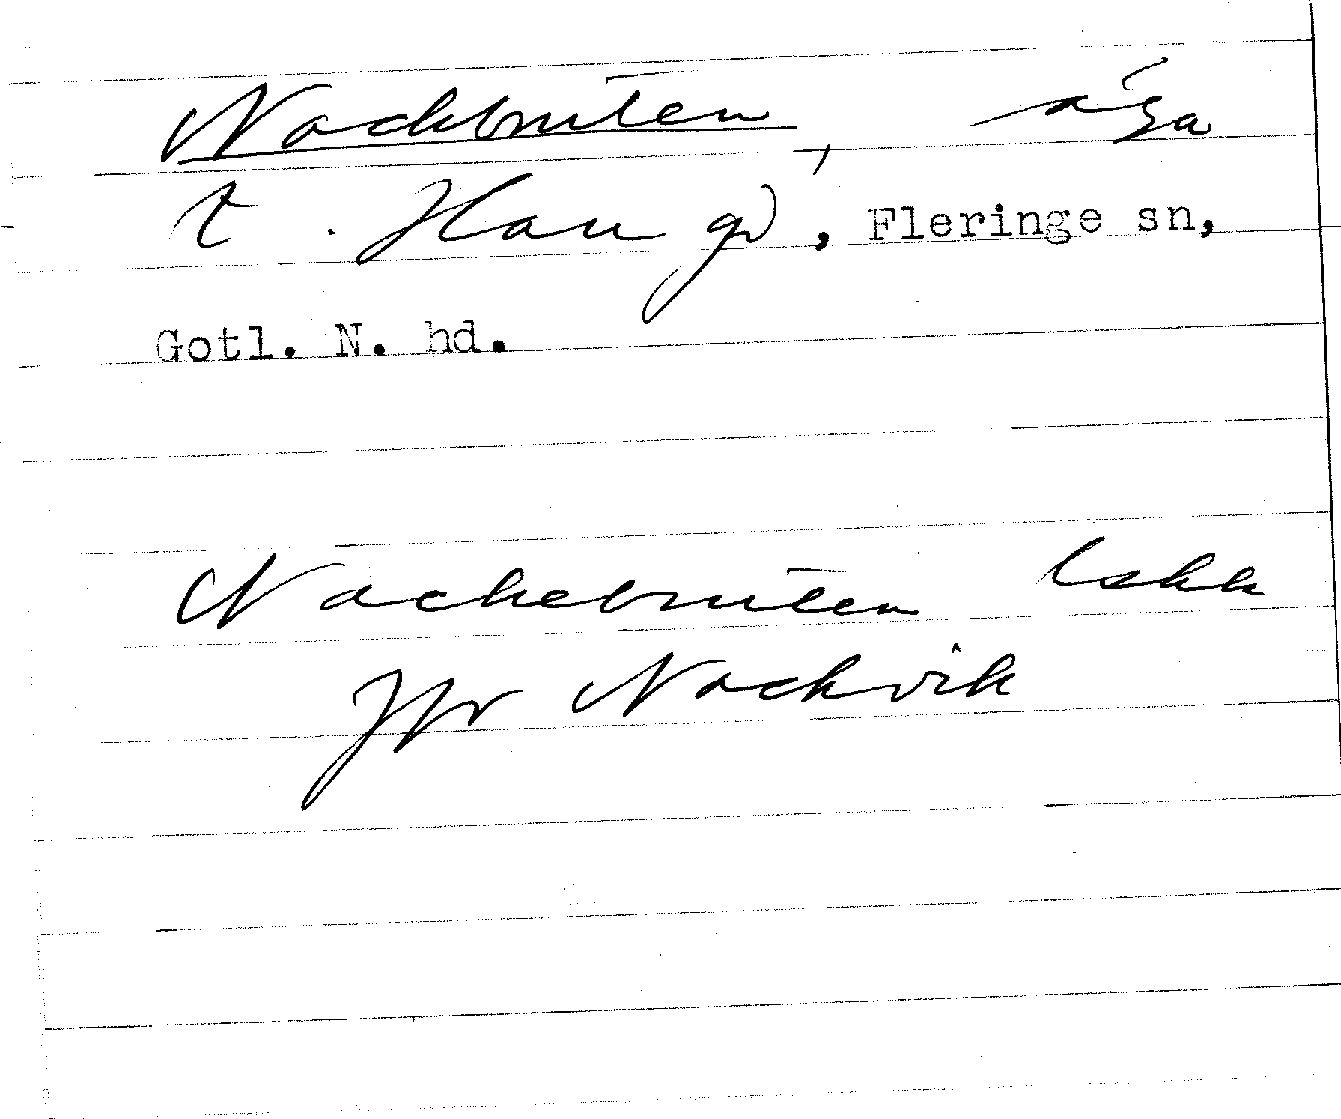 Nackbruten, äga
t. Hau gd, Fleringe sn,
Gotl. N. hd.
Nackebruten Lskk
Jfr Nackvik